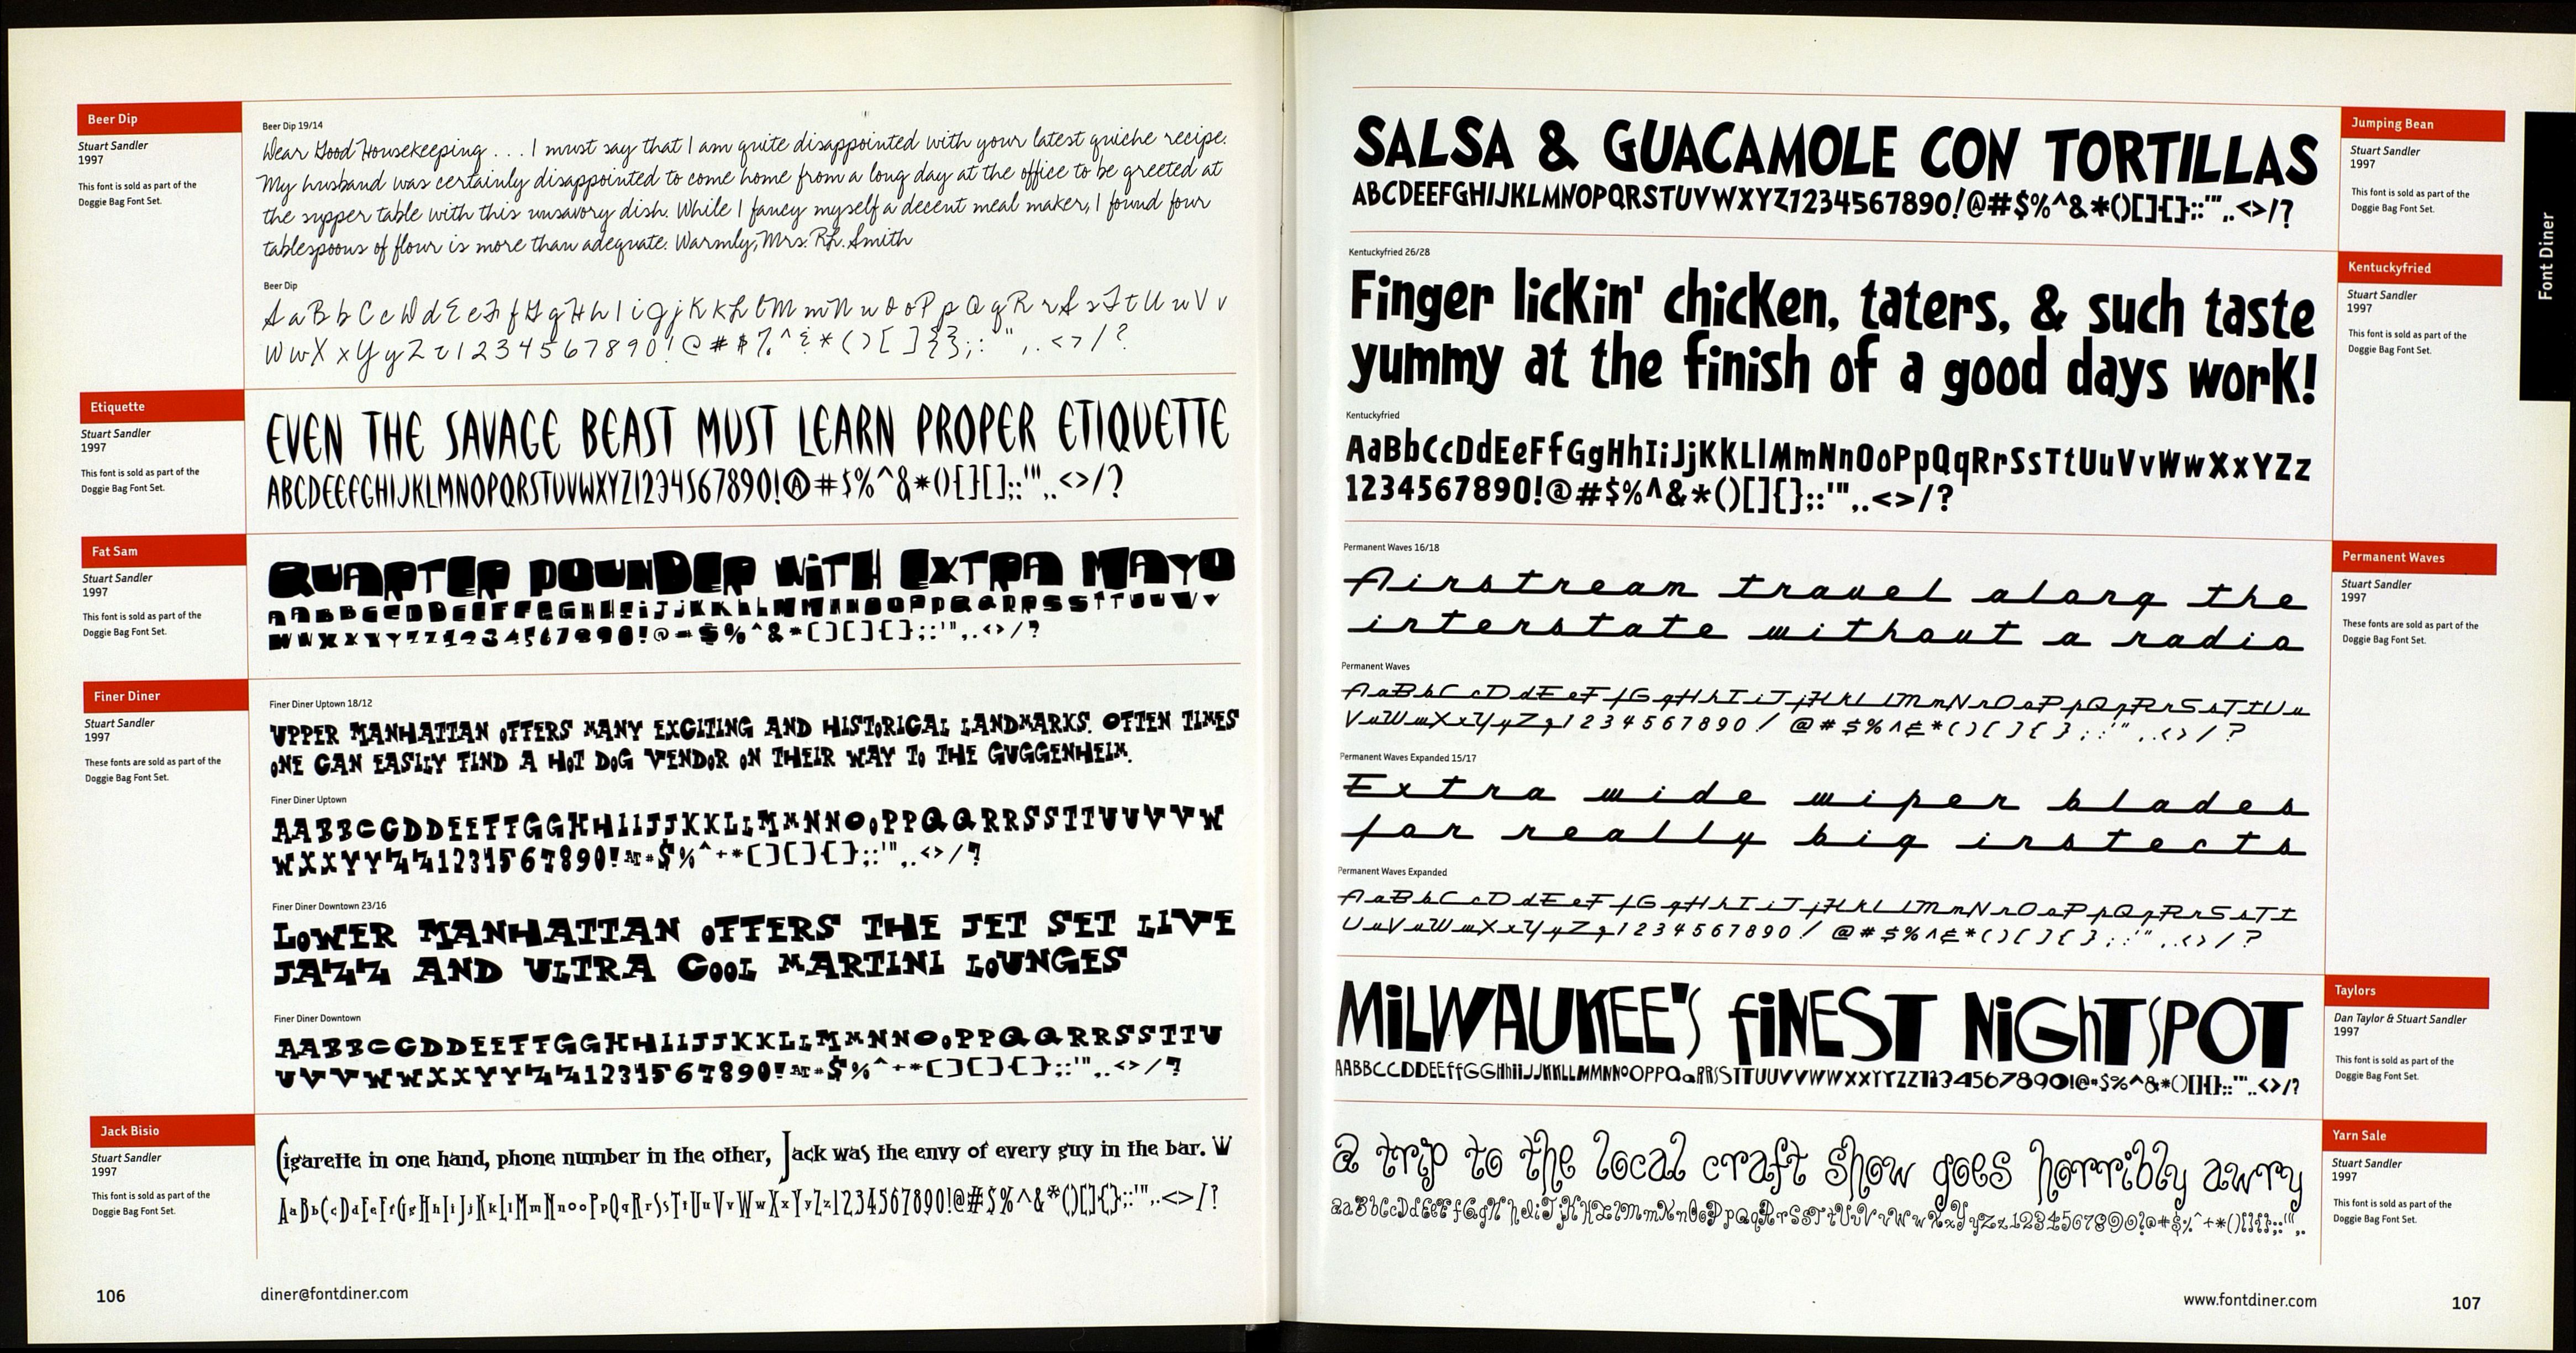 Beer Dip
Stuart Sandler
1997
This font is sold as part of the
Doggie Bag Font Set.
Beer Dip 19/14
Dear Good Housekeeping . . . I must say that I am quite disappointed with your latest quiche recipe.
My husband was certainly disappointed to come home from a long day at the office to be greeted at
the supper table with this unsavory dish. While I fancy myself a decent meal maker, I found four
tablespoons of flour is more than adequate. Warmly, Mrs. R.L. Smith
Beer Dip
AaBbCcDdEeFfGgHhIiJjKkLlMmNnOoPpQqRrSsTtUuVv
WwXxYyZz1234567890!@#$%^&*()[]{};:'",.<>/?
Etiquette
Stuart Sandler
1997
This font is sold as part of the
Doggie Bag Font Set.
EVEN THE SAVAGE BEAST MUST LEARN PROPER ETIQUETTE
ABCDEEFGHIJKLMNOPQRSTUVWXYZ1234567890!@#$%^&*(){}[];:'",.<>/?
Fat Sam
Stuart Sandler
1997
This font is sold as part of the
Doggie Bag Font Set.
QUARTER POUNDER WiTH EXTRA MAYO
AABBCCDDEEFFGGHHIiJJKKLLMMNNOOPPQQRRSSTTUUVV
WWXXYYZZ1234567890!@#$%^&*()[]{};:'",.<>/?
Finer Diner
Stuart Sandler
1997
These fonts are sold as part of the
Doggie Bag Font Set.
Finer Diner Uptown 18/12
UPPER MANHATTAN OFFERS MANY EXCITING AND HISTORICAL LANDMARKS. OFTEN TIMES
ONE CAN EASILY FIND A HOT DOG VENDOR ON THEIR WAY TO THE GUGGENHEIM.
Finer Diner Uptown
AABBCCDDEEFFGGHHIIJJKKLLMMNNOOPPQQRRSSTTUUVVW
WXXYYZZ1234567890!AT#$%^+*()[]{};:'",.<>/?
Finer Diner Downtown 23/16
LOWER MANHATTAN OFFERS THE JET SET LIVE
JAZZ AND ULTRA COOL MARTINI LOUNGES
Finer Diner Downtown
AABBCCDDEEFFGGHHIIJJKKLLMMNNOOPPQQRRSSTTU
UVVWWXXYYZZ1234567890!AT#$%^+*()[]{};:'",.<>/?
Jack Bisio
Stuart Sandler
1997
This font is sold as part of the
Doggie Bag Font Set.
Cigarette in one hand, phone number in the other, Jack was the envy of every guy in the bar.
AaBbCcDdEeFfGgHhIiJjKkLlMmNnOoPpQqRrSsTtUuVvWwXxYyZz1234567890!@#$%^&*()[]{};:'",.<>/?
106
diner@fontdiner.com
SALSA & GUACAMOLE CON TORTILLAS
ABCDEEFGHIJKLMNOPQRSTUVWXYZ1234567890!@#$%^&*()[]{};:'",.<>/?
Jumping Bean
Stuart Sandler
1997
This font is sold as part of the
Doggie Bag Font Set.
Font Diner
Kentuckyfried 26/28
Finger lickin' chicken, taters, & such taste
yummy at the finish of a good days work!
Kentuckyfried
AaBbCcDdEeFfGgHhIiJjKKLlMmNnOoPpQqRrSsTtUuVvWwXxYZz
1234567890!@#$%^&*()[]{};:'",.<>/?
Kentuckyfried
Stuart Sandler
1997
This font is sold as part of the
Doggie Bag Font Set.
Permanent Waves 16/18
Airstream travel along the
interstate without a radio
Permanent Waves
AaBbCcDdEeFfGgHhIiJjKkLlMmNnOoPpQqRrSsTtUu
VvWwXxYyZz1234567890! @#$%^&*()[]{};:'",.<>/?
Permanent Waves Expanded 15/17
Extra wide wiper blades
for really big instects
Permanent Waves Expanded
AaBbCcDdEeFfGgHhIiJjKkLlMmNnOoPpQqRrSsTt
UuVvWwXxYyZz1234567890! @#$%^&*()[]{};:'",.<>/?
Permanent Waves
Stuart Sandler
1997
These fonts are sold as part of the
Doggie Bag Font Set.
MiLWAUKEE'S fiNEST NiGhTSPOT
AABBCCDDEEffGGHhIiJJKKLLMMNNOOPPQQRRSSTTUUVVWWXXYYZZ1234567890!@#$%^&*()[]{};:'",.<>/?
Taylors
Dan Taylor & Stuart Sandler
1997
This font is sold as part of the
Doggie Bag Font Set.
a trip to the local craft show goes horribly awry
aaBbCcDdEeFfGgHhIiJjKkLlMmNnOoPpQqRrSsTtUuVvWwXxYyZz1234567890!@#$%^+*()[]{};:'",.
Yarn Sale
Stuart Sandler
1997
This font is sold as part of the
Doggie Bag Font Set.
www.fontdiner.com
107